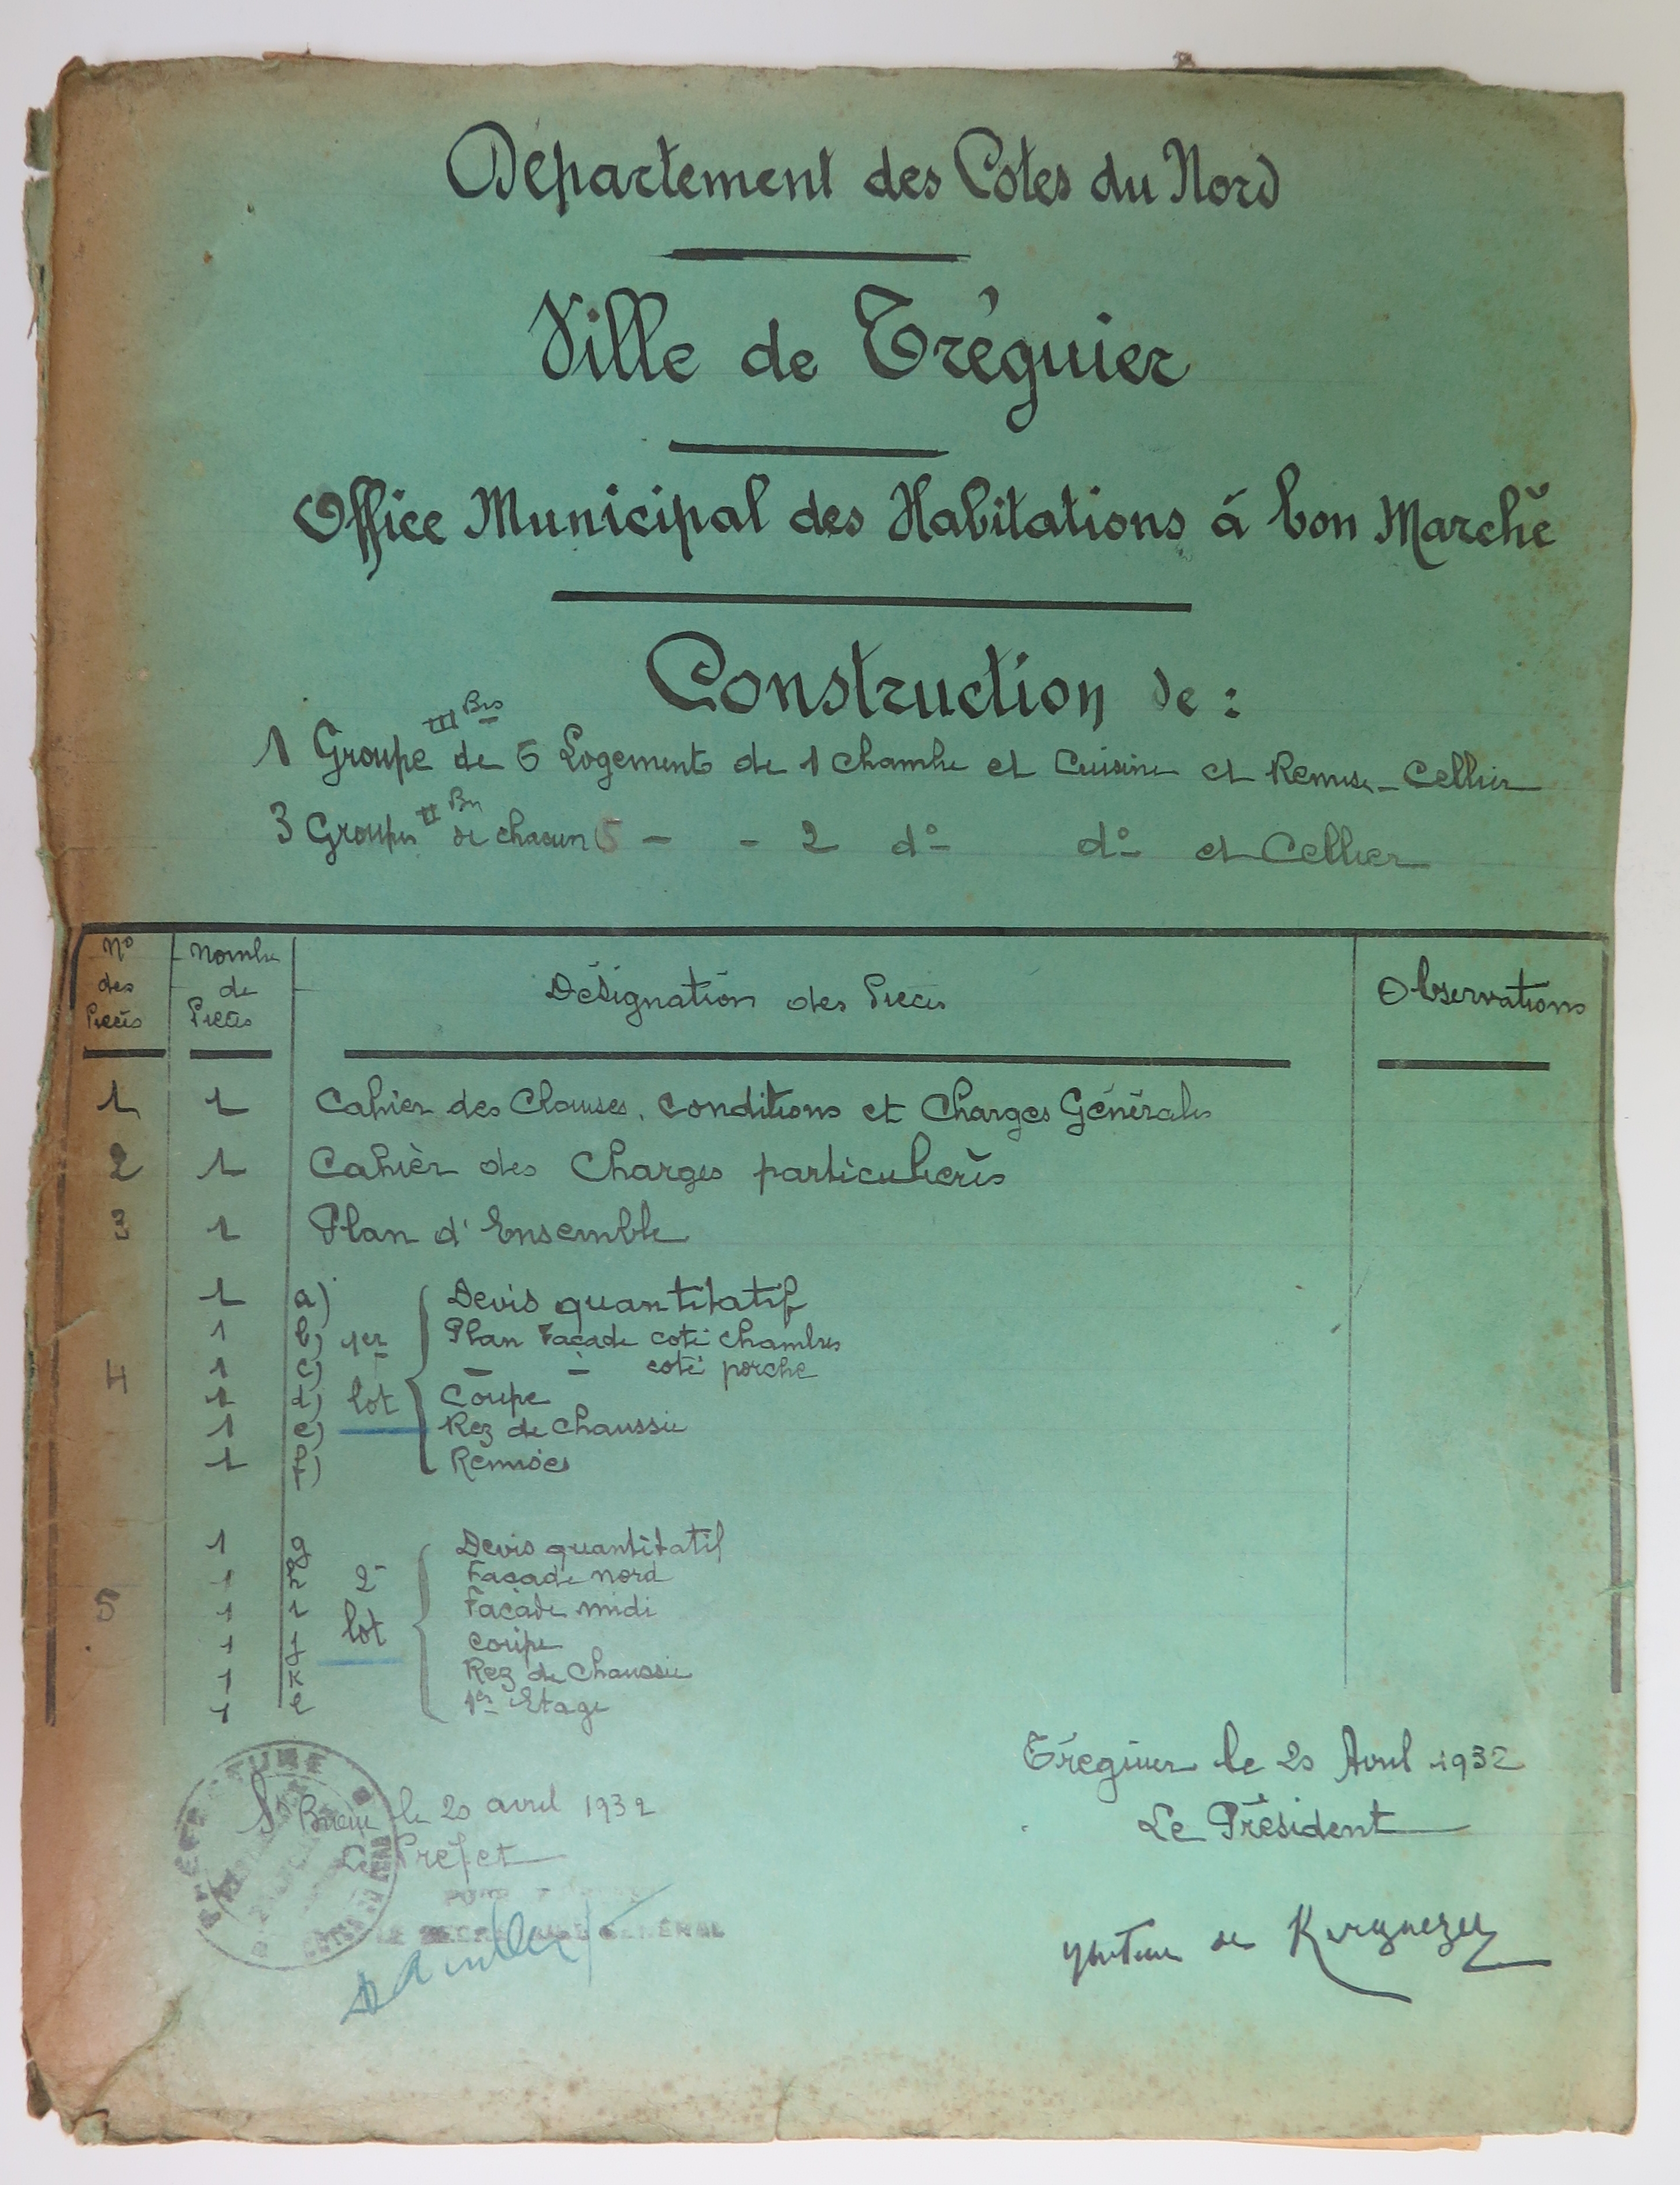 Département des Cotes du Nord
Ville de Tréguier
Office Municipal des Habitations á bon Marché
Construction de :
III Bis
1 Groupe de 5 Logements de 1 chambre et Cuisine et Remise - Cellier
II Bis
3 Groupes de chacun 5 - - 2 do do et Cellier
No des Pieces
Nombre de Pieces
Désignation des Pieces
Observations
1 1 Cahier des Clauses, Conditions et Charges Générales
2 1 Cahièr des Charges particulieres
3 1 Plan d'Ensemble
1 a) Devis quantitatif
1 b) 1er Plan Façade coté chambres
4 1 c) - - coté porche
1 d) lot Coupe
1 e) Rez de Chaussée
1 f) Remises
1 g Devis quantitatif
1 h 2e Façade nord
5 1 i Façade midi
1 j lot coupe
1 k Rez de Chaussée
1 l 1er Etage
Tréguier le 20 Avril 1932
Le Président
de
PRÉFECTURE
St Brieuc le 20 avril 1932
Le Préfet
LE SECRÉTAIRE GÉNÉRAL